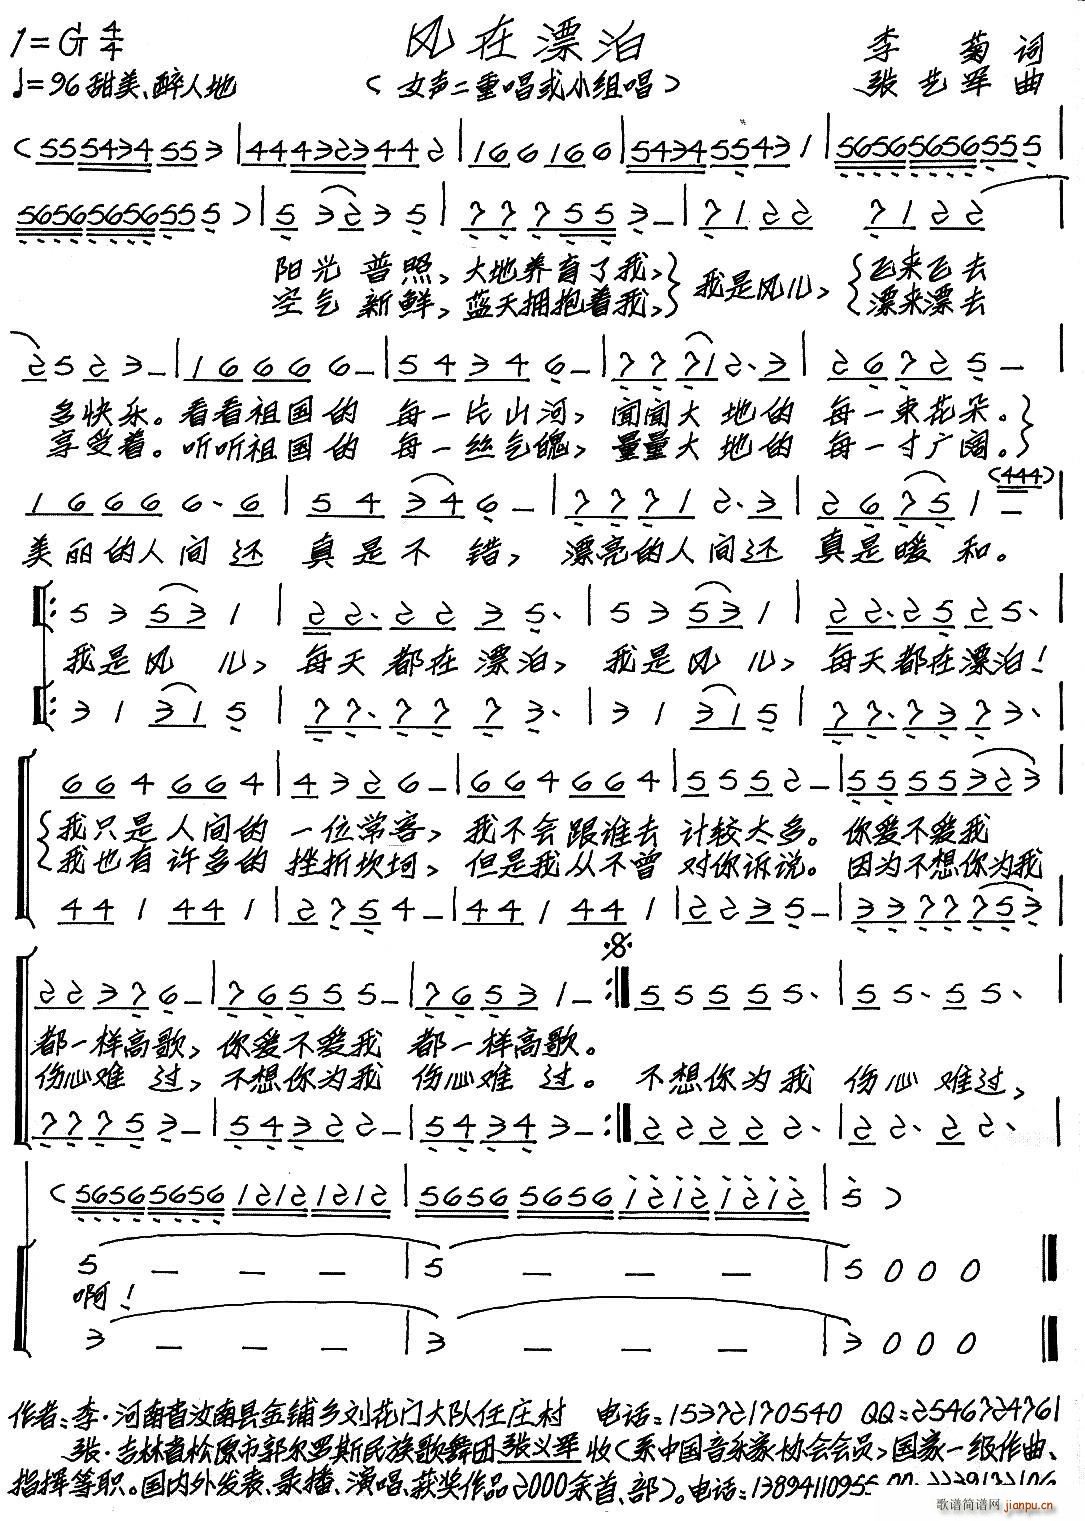 1=G 4/4 风在漂泊 李菊词
♩=96 甜美、醉人地 (女声二重唱或小组唱) 张艺军曲
(555434553|444323442|166166|543455431|56565656555|
56565656555)|53235|777553-|7122 7122|
阳光普照，大地养育了我，}我是风儿，{飞来飞去
空气新鲜，蓝天拥抱着我，}{漂来漂去
2523-|166666-|54346-|77712·3|26725-|
多快乐。看看祖国的每一片山河，闻闻大地的每一束花朵。}
享受着。听听祖国的每一丝气魄，量量大地的每一寸广阔。}
166666·6|54346-|77712·3|26751(444)-|
美丽的人间还真是不错，漂亮的人间还真是暖和。
‖:53531|22·2235·|53531|22·2525·|
我是风儿，每天都在漂泊，我是风儿，每天都在漂泊！
‖:31315|77·7773·|31315|77·7373·|
664664|4326-|664664|5552-|5555323|
{我只是人间的一位常客，我不会跟谁去计较太多。你爱不爱我
{我也有许多的挫折坎坷，但是我从不曾对你诉说。因为不想你为我
441441|2754-|441441|2235-|3377753|
22376-|76555-|76531-:‖55555·|55·55·|
都一样高歌，你爱不爱我都一样高歌。
伤心难过，不想你为我伤心难过。不想你为我伤心难过，
77753-|54322-|54343-:‖22222·|22·22·|
(5656565612121212|5656565612121212|5)
5---|5---|5000‖
啊！
3---|3---|3000‖
作者：李·河南省汝南县金铺乡刘花门大队任庄村 电话：15372170540 QQ：2546724761
张·吉林省松原市郭尔罗斯民族歌舞团张义军收(系中国音乐家协会会员)国家一级作曲、
指挥等职。国内外发表、录播、演唱、获奖作品2000余首、部)。电话：13894110955
歌谱简谱网 jianpu.cn